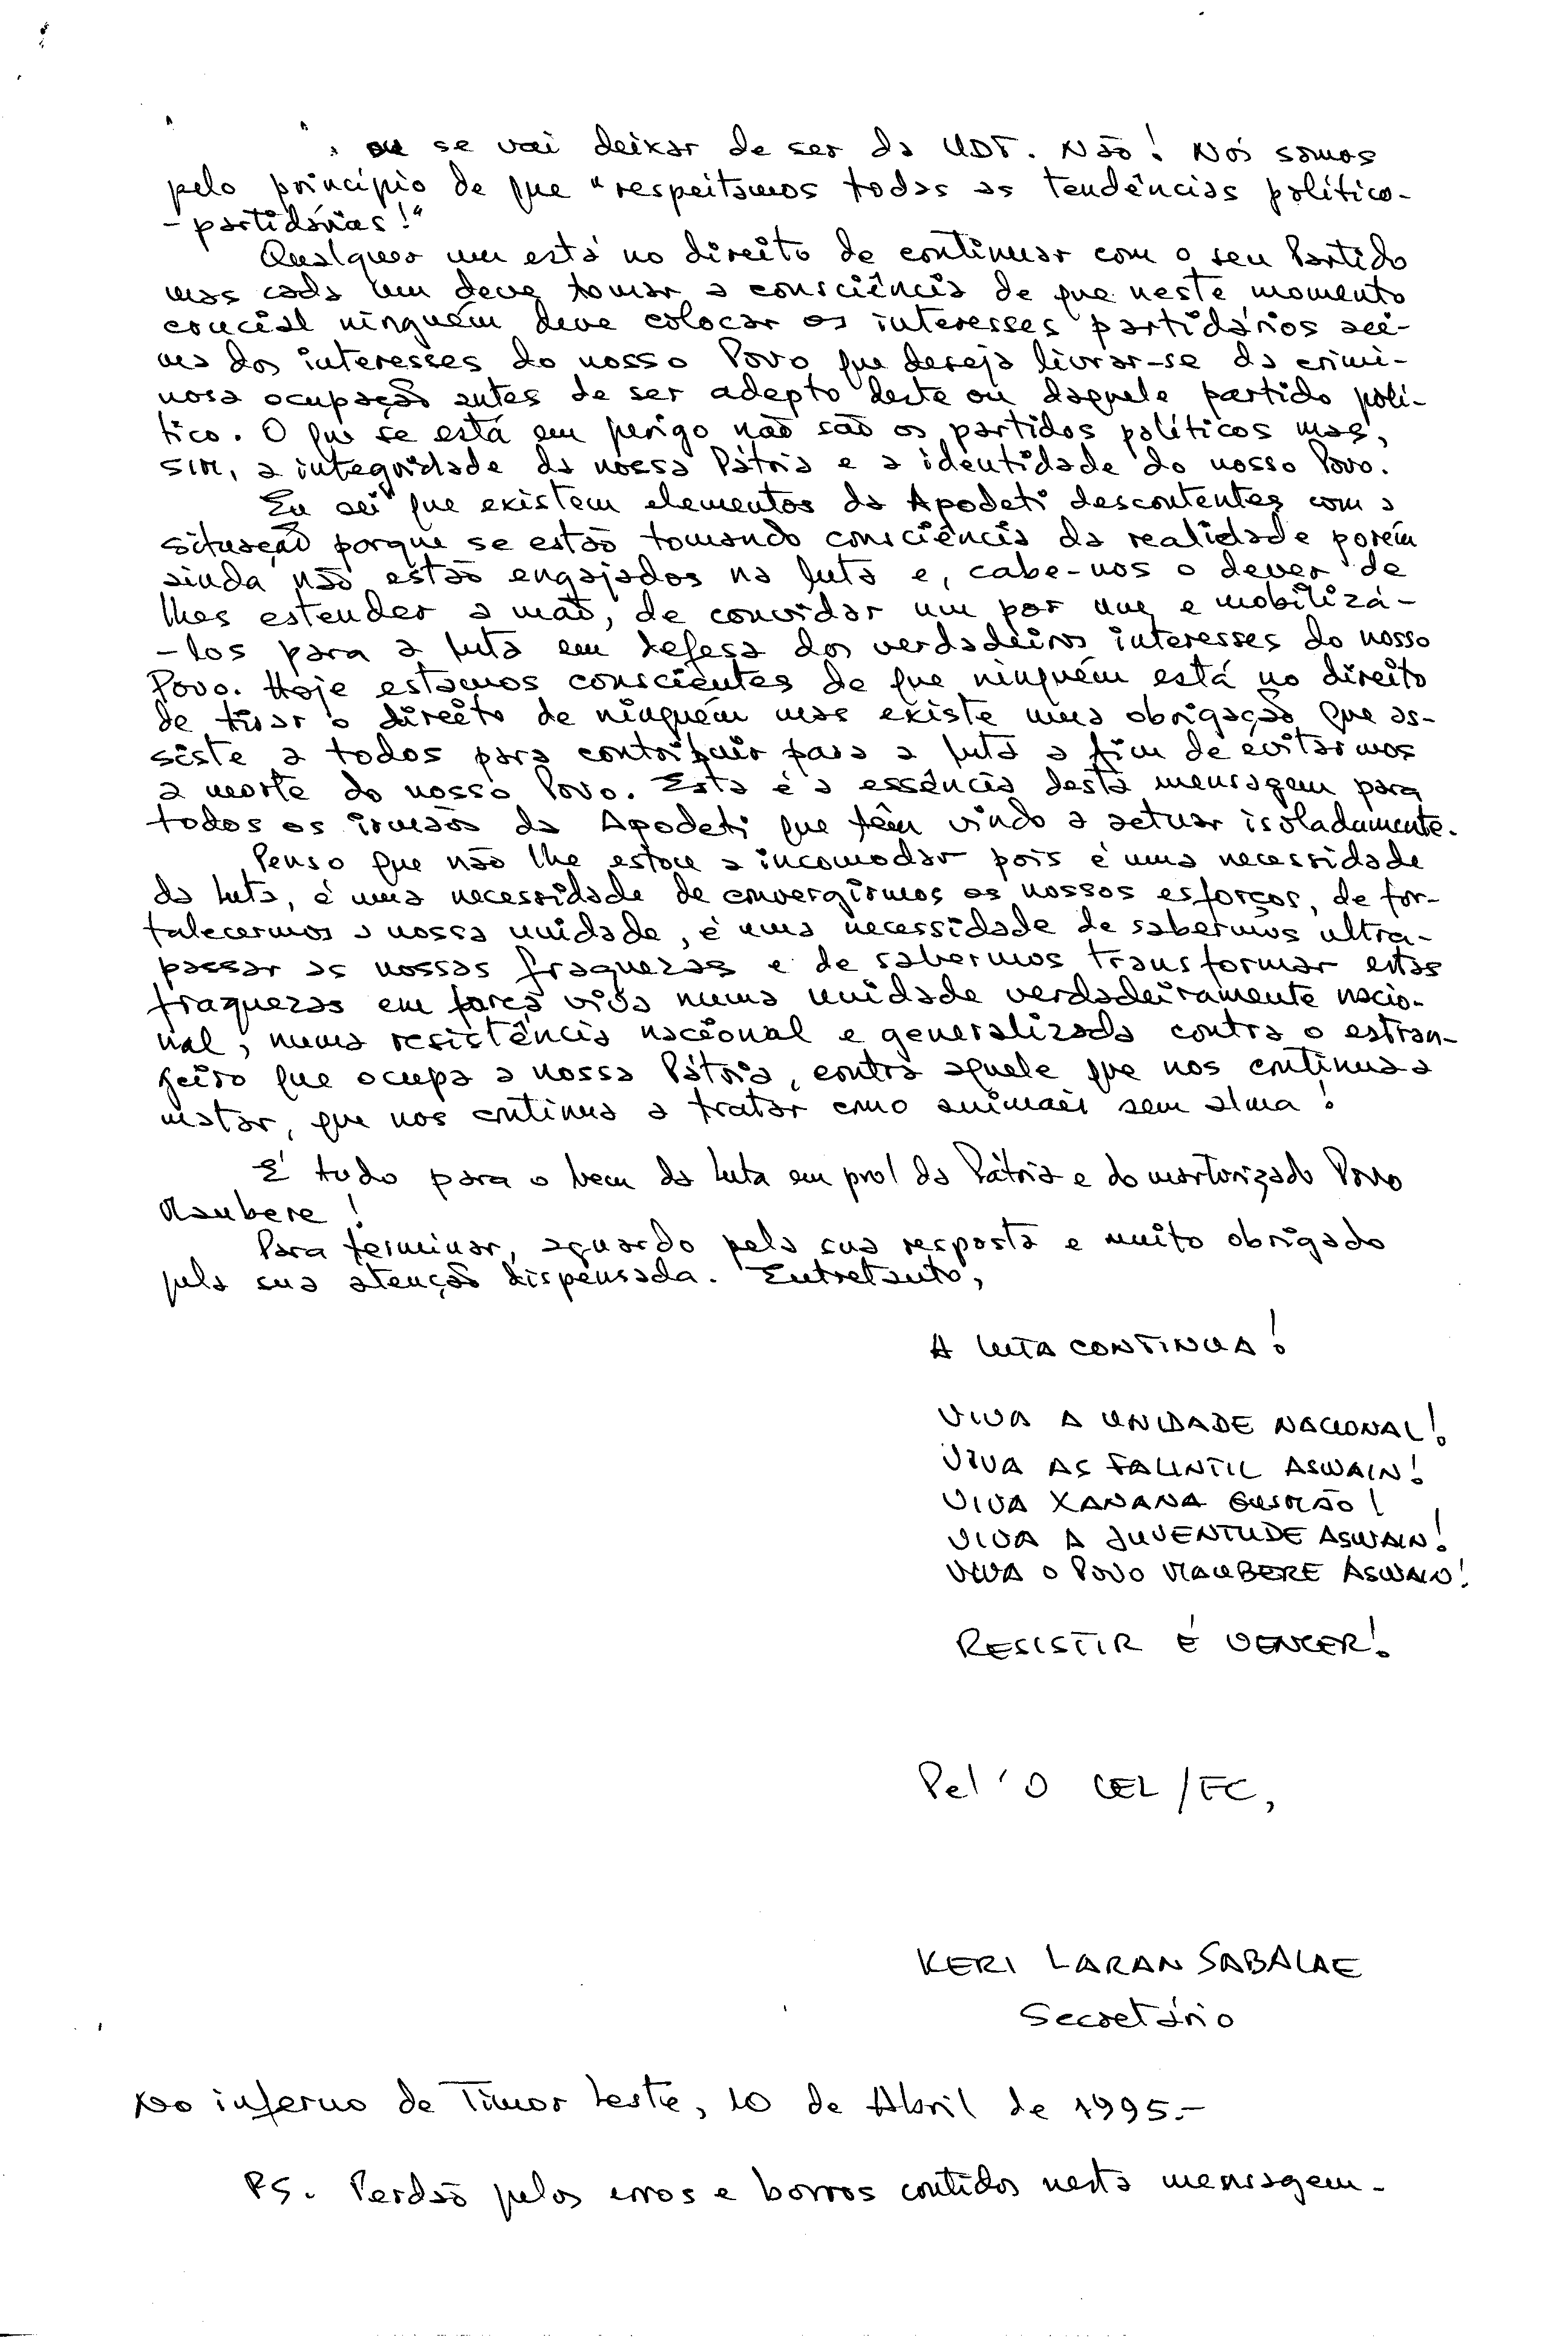 ou se vai deixar de ser da UDT. Não! Nós somos
pelo princípio de que "respeitamos todas as tendências político-
-partidárias!"
Qualquer um está no direito de continuar com o seu Partido
mas cada um deve tomar a consciência de que neste momento
crucial ninguém deve colocar os interesses partidários aci-
ma dos interesses do nosso Povo que deseja livrar-se da crimi-
nosa ocupação antes de ser adepto deste ou daquele partido polí-
tico. O que se está em perigo não são os partidos políticos mas,
sim, a integridade da nossa Pátria e a identidade do nosso Povo.
Eu sei que existem elementos da Apodeti descontentes com a
situação porque se estão tomando consciência da realidade porém
ainda não estão engajados na luta e, cabe-nos o dever de
lhes estender a mão, de convidar um por um e mobilizá-
-los para a luta em defesa dos verdadeiros interesses do nosso
Povo. Hoje estamos conscientes de que ninguém está no direito
de tirar o direito de ninguém mas existe uma obrigação que as-
siste a todos para contribuir para a luta a fim de evitarmos
a morte do nosso Povo. Esta é a essência desta mensagem para
todos os irmãos da Apodeti que têm vindo a actuar isoladamente.
Penso que não lhe estou a incomodar pois é uma necessidade
da luta, é uma necessidade de convergirmos os nossos esforços, de for-
talecermos a nossa unidade, é uma necessidade de sabermos ultra-
passar as nossas fraquezas e de sabermos transformar estas
fraquezas em força viva numa unidade verdadeiramente nacio-
nal, numa resistência nacional e generalizada contra o estran-
geiro que ocupa a nossa Pátria, contra aquele que nos continua a
matar, que nos continua a tratar como animais sem alma!
É tudo para o bem da luta em prol da Pátria e do martorizado Povo
Maubere!
Para terminar, aguardo pela sua resposta e muito obrigado
pela sua atenção dispensada. Entretanto,
A LUTA CONTINUA!
VIVA A UNIDADE NACIONAL!
VIVA AS FALINTIL ASWAIN!
VIVA XANANA GUSMÃO!
VIVA A JUVENTUDE ASWAIN!
VIVA O POVO MAUBERE ASWAIN!
RESISTIR É VENCER!
Pel'O CEL/FC,
KERI LARAN SABALAE
Secretário
No inferno de Timor Leste, 10 de Abril de 1995.-
PS. Perdão pelos erros e borros contidos nesta mensagem.